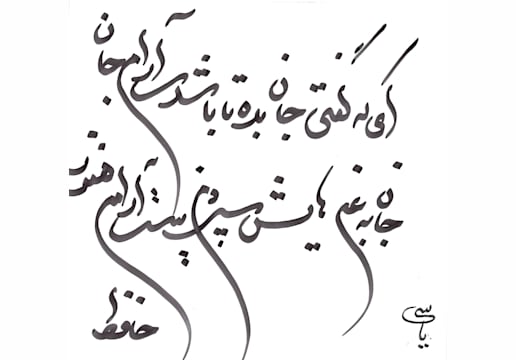 ای که گفتی جان بده تا باشدت آرام جان
جان به غم هایش سپردم نیست آرامم هنوز
حافظ
یاسی